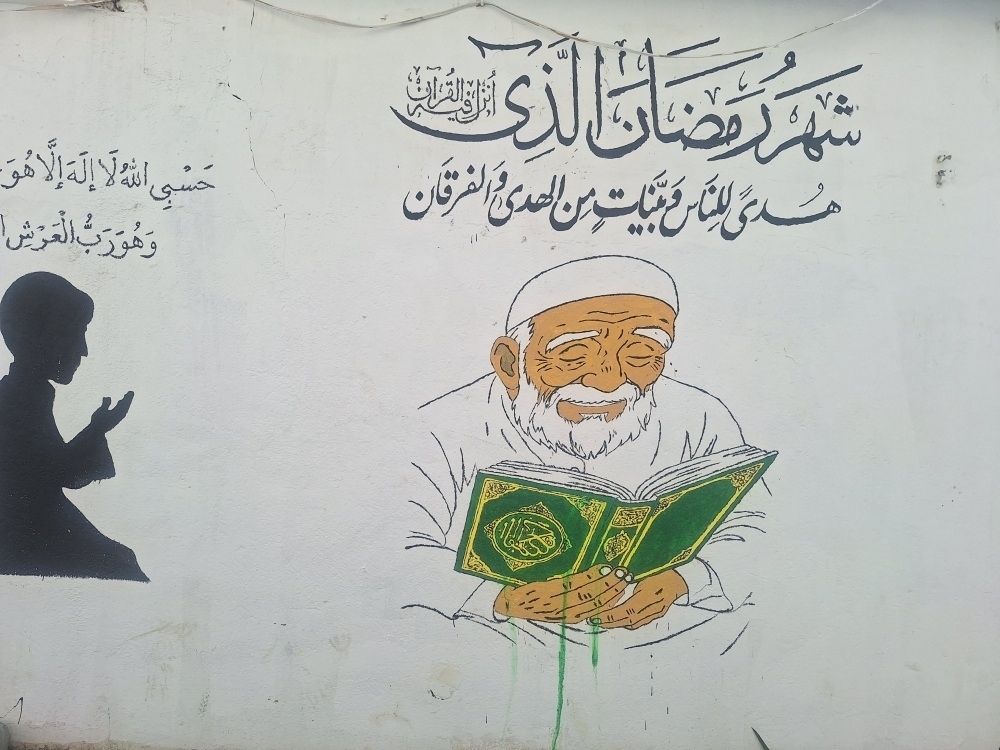 شَهرُ رَمَضَان الَّذِي أُنزل فيه القُرآن
هُدىً لِلنَاس وَبَيِّنَاتٍ مِن الهدى وَالفرقَان
حَسْبِي اللهُ لَا إِلَهَ إِلَّا هُوَ
وَهُوَ رَبُّ الْعَرْشِ